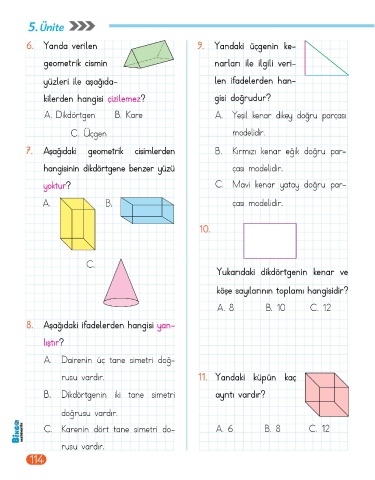 5. Ünite
6. Yanda verilen
geometrik cismin
yüzleri ile aşağıda-
kilerden hangisi çizilemez?
A. Dikdörtgen B. Kare
C. Üçgen
7. Aşağıdaki geometrik cisimlerden
hangisinin dikdörtgene benzer yüzü
yoktur?
A. B.
C.
8. Aşağıdaki ifadelerden hangisi yan-
lıştır?
A. Dairenin üç tane simetri doğ-
rusu vardır.
B. Dikdörtgenin iki tane simetri
doğrusu vardır.
C. Karenin dört tane simetri do-
rusu vardır.
9. Yandaki üçgenin ke-
narları ile ilgili veri-
len ifadelerden han-
gisi doğrudur?
A. Yeşil kenar dikey doğru parçası
modelidir.
B. Kırmızı kenar eğik doğru par-
çası modelidir.
C. Mavi kenar yatay doğru par-
çası modelidir.
10.
Yukarıdaki dikdörtgenin kenar ve
köşe sayılarının toplamı hangisidir?
A. 8 B. 10 C. 12
11. Yandaki küpün kaç
ayrıtı vardır?
A. 6 B. 8 C. 12
Bingo
114